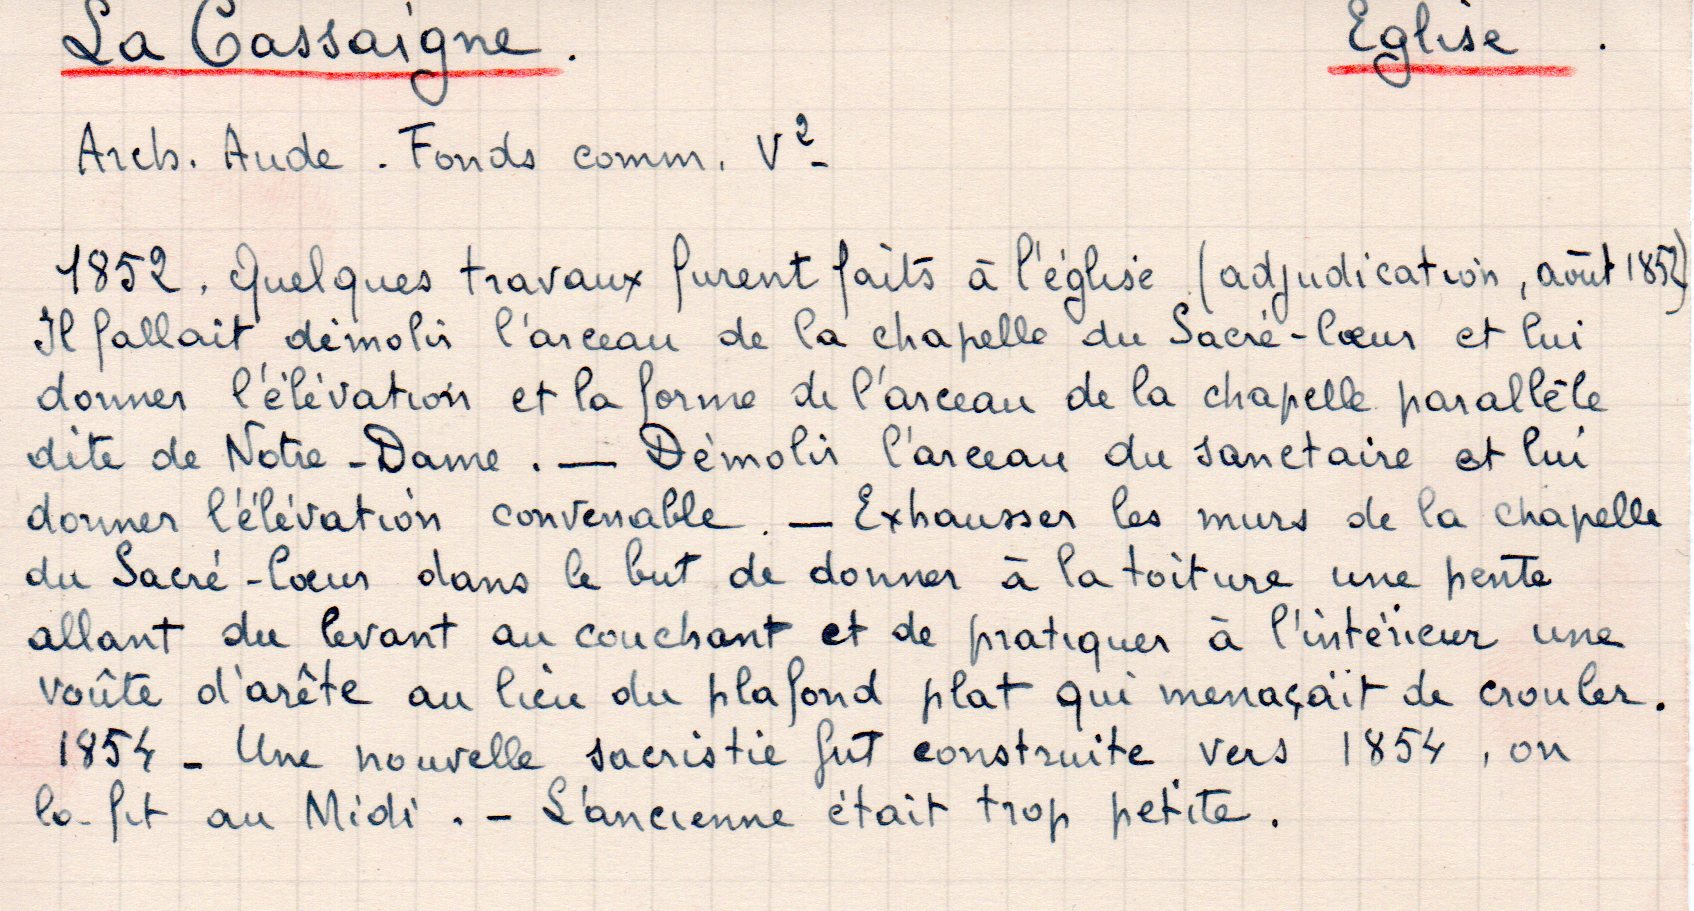 La Cassaigne. Eglise.
Arch. Aude. Fonds comm. V²-
1852. Quelques travaux furent faits à l'église (adjudication, août 1852)
Il fallait démolir l'arceau de la chapelle du Sacré-Cœur et lui
donner l'élévation et la forme de l'arceau de la chapelle parallèle
dite de Notre-Dame. — Démolir l'arceau du sanctaire et lui
donner l'élévation convenable. — Exhausser les murs de la chapelle
du Sacré-Cœur dans le but de donner à la toiture une pente
allant du levant au couchant et de pratiquer à l'intérieur une
voûte d'arête au lieu du plafond plat qui menaçait de crouler.
1854 - Une nouvelle sacristie fut construite vers 1854, on
la fit au Midi. - L'ancienne était trop petite.